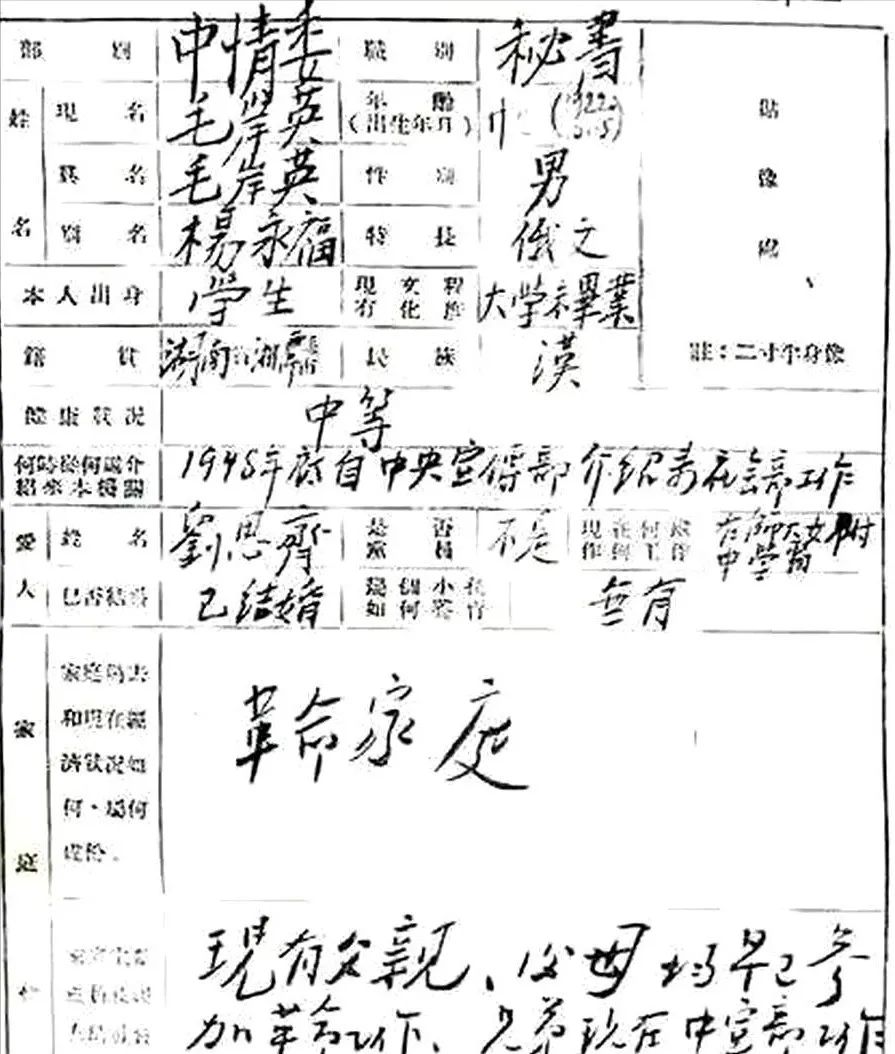 部別 中情委 職別 秘書
姓名 現名 毛岸英 年齡(出生年月) 貼像處
真名 毛岸英 性別 男
別名 楊永福 特長 俄文
本人出身 學生 現有文化程度 大学未畢業
籍貫 湖南 民族 漢 註：二寸半身像
健康狀況 中等
何時從何處介紹來本機關 年 自中央宣傳部介紹 在 部工作
愛人 姓名 劉思齊 是否黨員 不是 現在何處作何工作 師大女附中學習
已否結婚 已結婚 幾個小孩如何養育 無有
家庭 家庭過去和現在經濟狀況如何，屬何成份。 革命家庭
現有父親、父母均早已參
加革命工作、兄弟現在中宣部工作